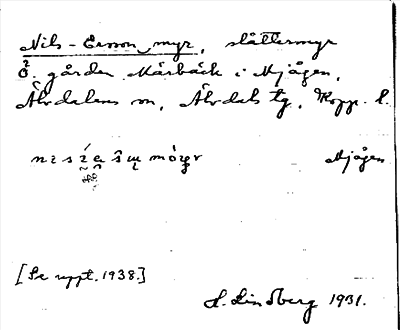 Nils-Ersson myr, slåttermyr
Ö. gården Mårbäck i Mjågen,
Älvdalens sn, Älvdals tg, Kopp. l.
Mjågen
[Se uppt. 1938.]
H. Lindberg 1931.